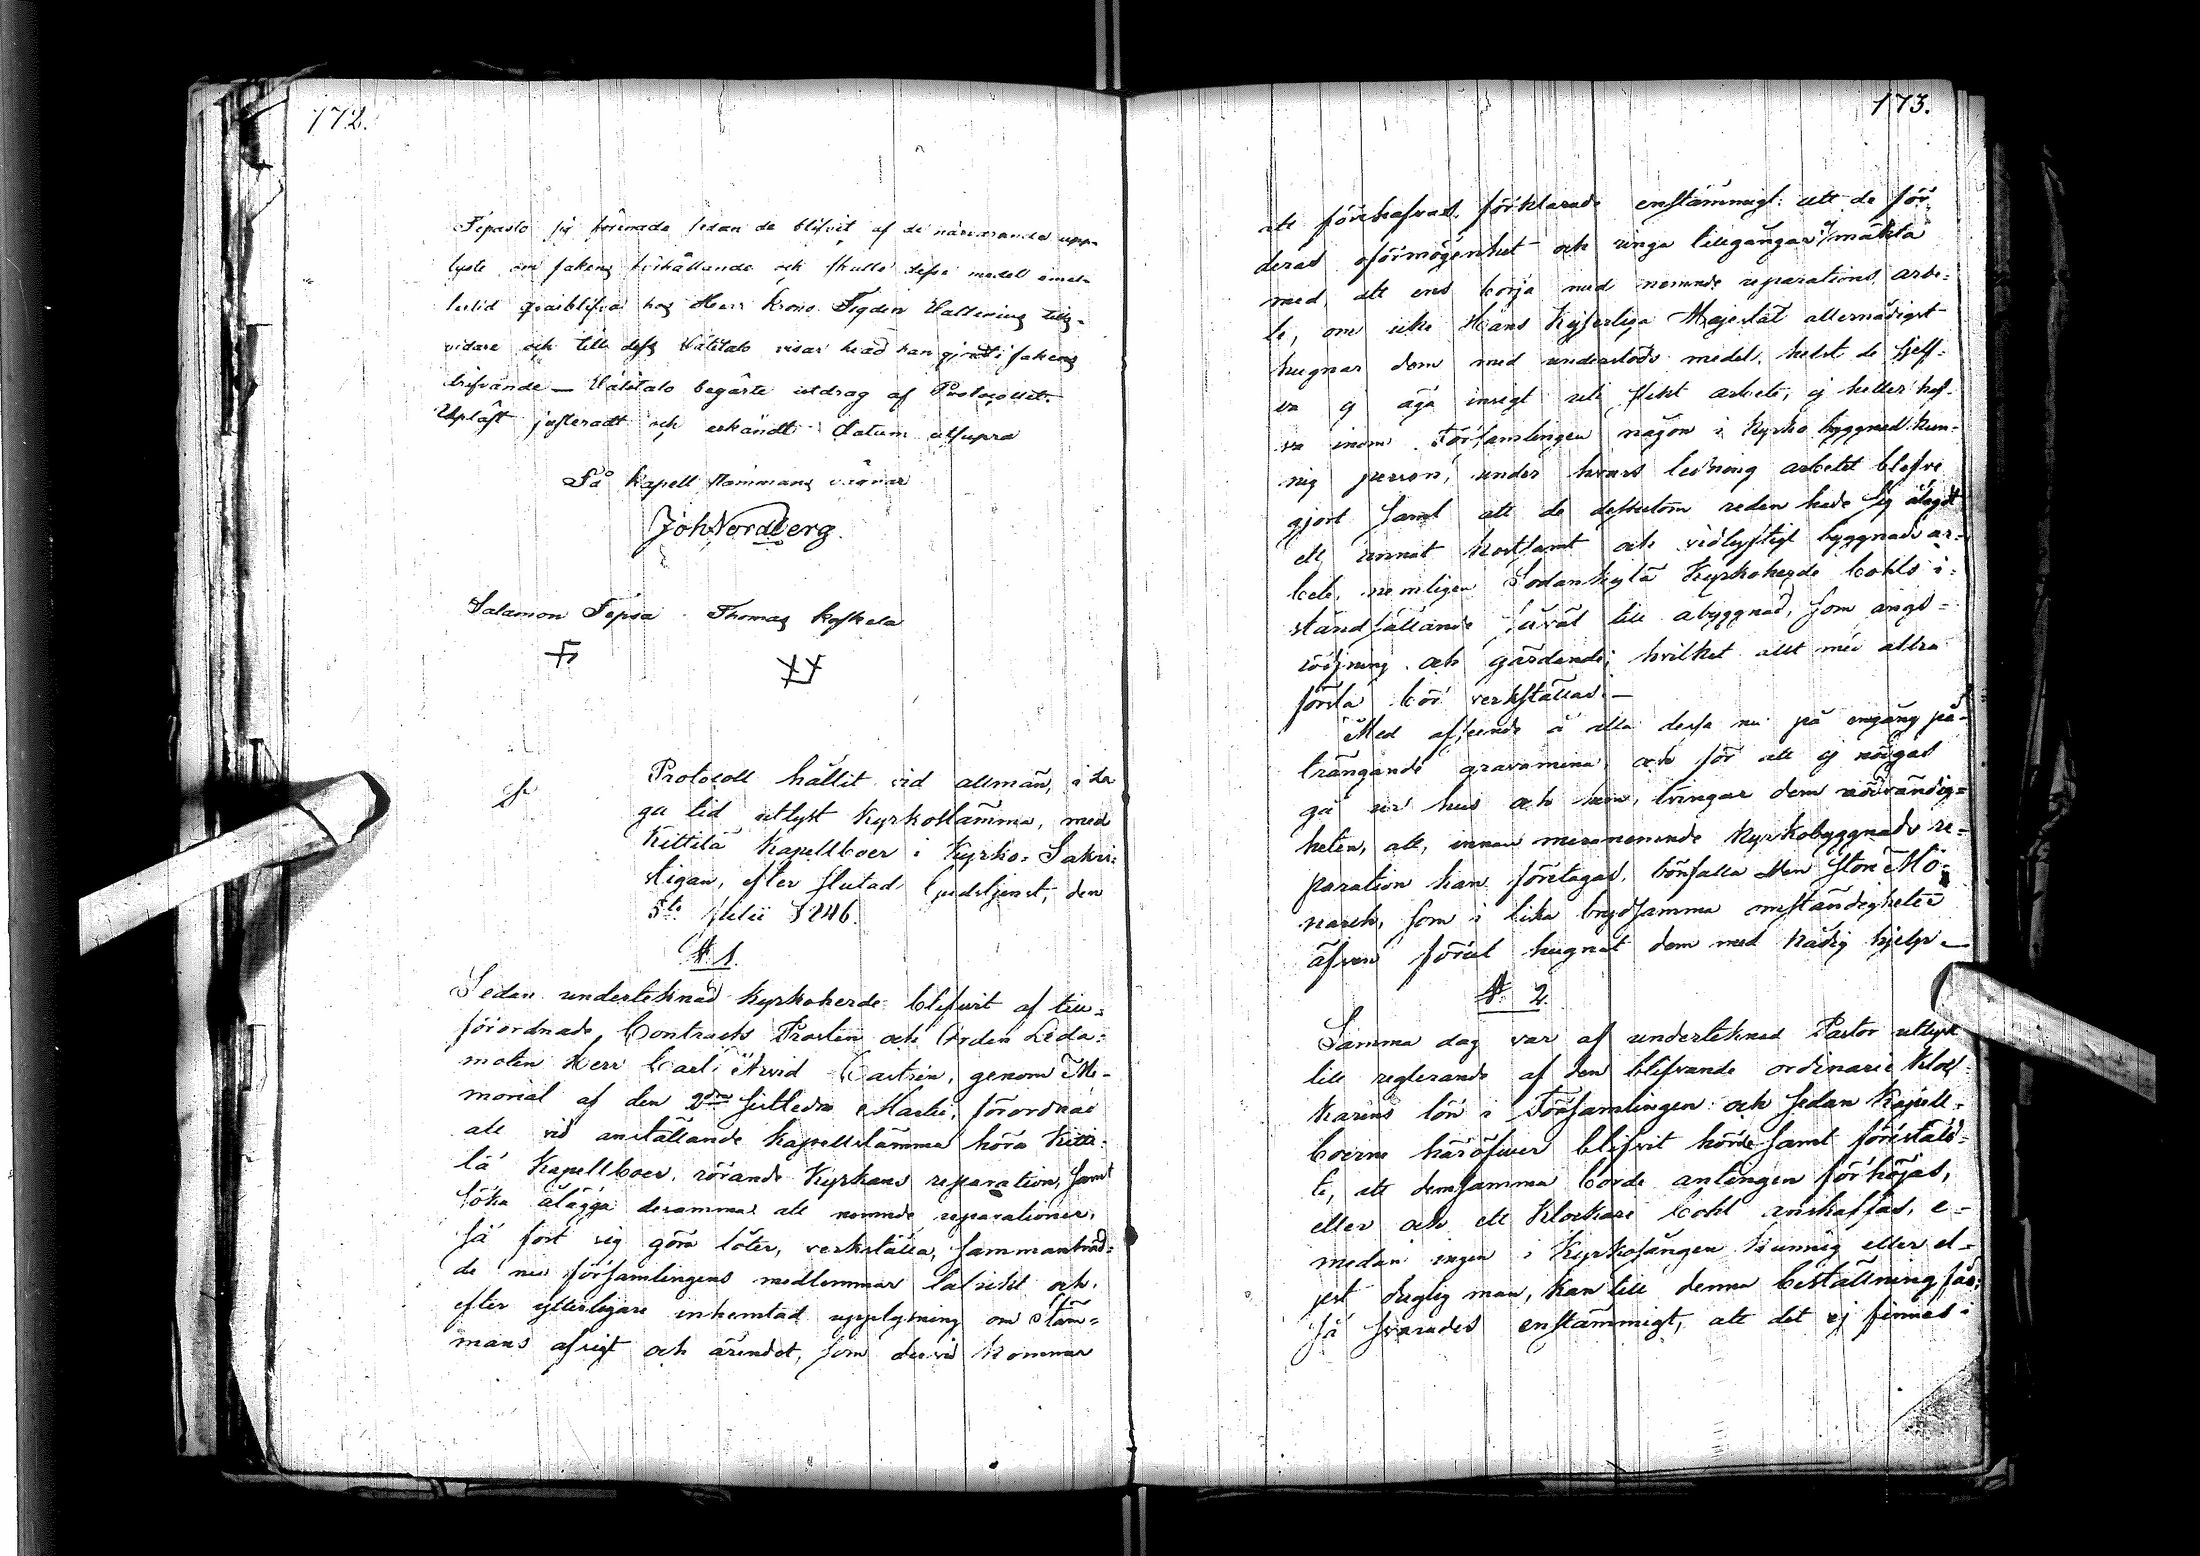 172.
sig förenade sedan de blifvit af de närvarande upp-
lyste om sakens förhållande och skulle desse medel emel-
lertid qvarblifva hos Herr Krono Fogden
vidare och till dess visar hvad han gjordt i sakens
bifvande — begärte utdrag af Protocollet.
Upläst justeradt och erkändt Datum utsupra
På Kapell stämmans vägnar
Joh Nordberg.
Salamon Tepsa Thomas Koskela
Protocoll hållit vid allmän, i da
ga tid utlyst Kyrkostämma, med
Kittilä Kapellboer i Kyrko-Sakri-
stigan, efter slutad Gudstjenst, den
5te Julii 1846.
§. 1.
Sedan undertecknad Kyrkoherde blifvit af till-
förordnade Contracts Prosten och Orden Leda-
moten Herr Carl Arvid Castrén, genom Me-
morial af den 2dra sistledne Martii, förordnad
att vid anställande Kapellstämma höra Kitti-
lä Kapellboer, rörande Kyrkans reparation, samt
söka ålägga desamma att nemnde reparationer,
så fort sig göra låter, verkställa, sammanträd-
de nu församlingens medlemmar talrikt och
efter ytterligare inhemtad upplysning om Stäm-
mans afsigt och ärendet, som dervid kommer
173.
att förehafvas, förklarade enstämmigt: att de för
deras oförmögenhet och ringa tillgångar ej mäkta
med att ens börja med nemnde reparations arbe-
te, om icke Hans Kejserliga Majestät allernådigst
hugnar dem med understöds medel, helst de sjelf-
va ej äga insigt uti slikt arbete, ej heller haf-
va inom Församlingen någon i Kyrko byggnad kun-
nig person, under hvars ledning arbetet blefve
gjort samt att de dessutom redan hade sig ålagdt
ett annat kostsamt och vidlyftigt byggnads ar-
bete, nemligen Sodankylä Kyrkoherde Bohls i-
ståndsättande såväl till åbyggnad, som ängs-
röjning och gärdande; hvilket allt med allra
första bör verkställas.—
Med afseende å alla dessa nu på engång på-
trängande gravamina och för att ej nödgas
gå ur hus och hem, tvingar dem nödvändig-
heten, att, innan meranemnde Kyrkobyggnads re-
paration kan företagas, bönfalla den store Mo-
narch, som i lika brydsamma omständigheter
äfven förut hugnat dem med Nådig hjelp.—
§. 2.
Samma dag var af undertecknad Pastor utlyst
till reglerande af den blifvande ordinarie Kloc-
karens lön i Församlingen och sedan Kapell-
boerne häröfver blifvit hörde samt föreställ-
te, att densamma borde antingen förhöjas,
eller och ett Klockare Bohl anskaffas, e-
medan ingen i Kyrkosången kunnig eller el-
jest duglig man, kan till denna beställning fås;
Så svarades enstämmigt, att det ej finnes i